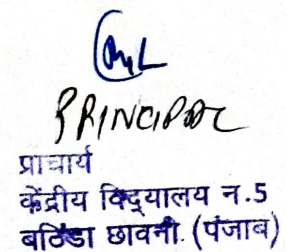 PRINCIPAL
प्राचार्य
केंद्रीय विद्यालय न.5
बठिंडा छावनी. (पंजाब)